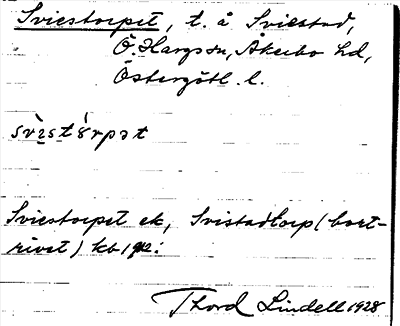 Sviestorpet, t. å Sviestad,
Ö. Hargson, Åkerbo hd,
Östergötl. l.
Sviestorpet ek, Svistadtorp (bort-
rivet) kb
Thord Lindell 1928